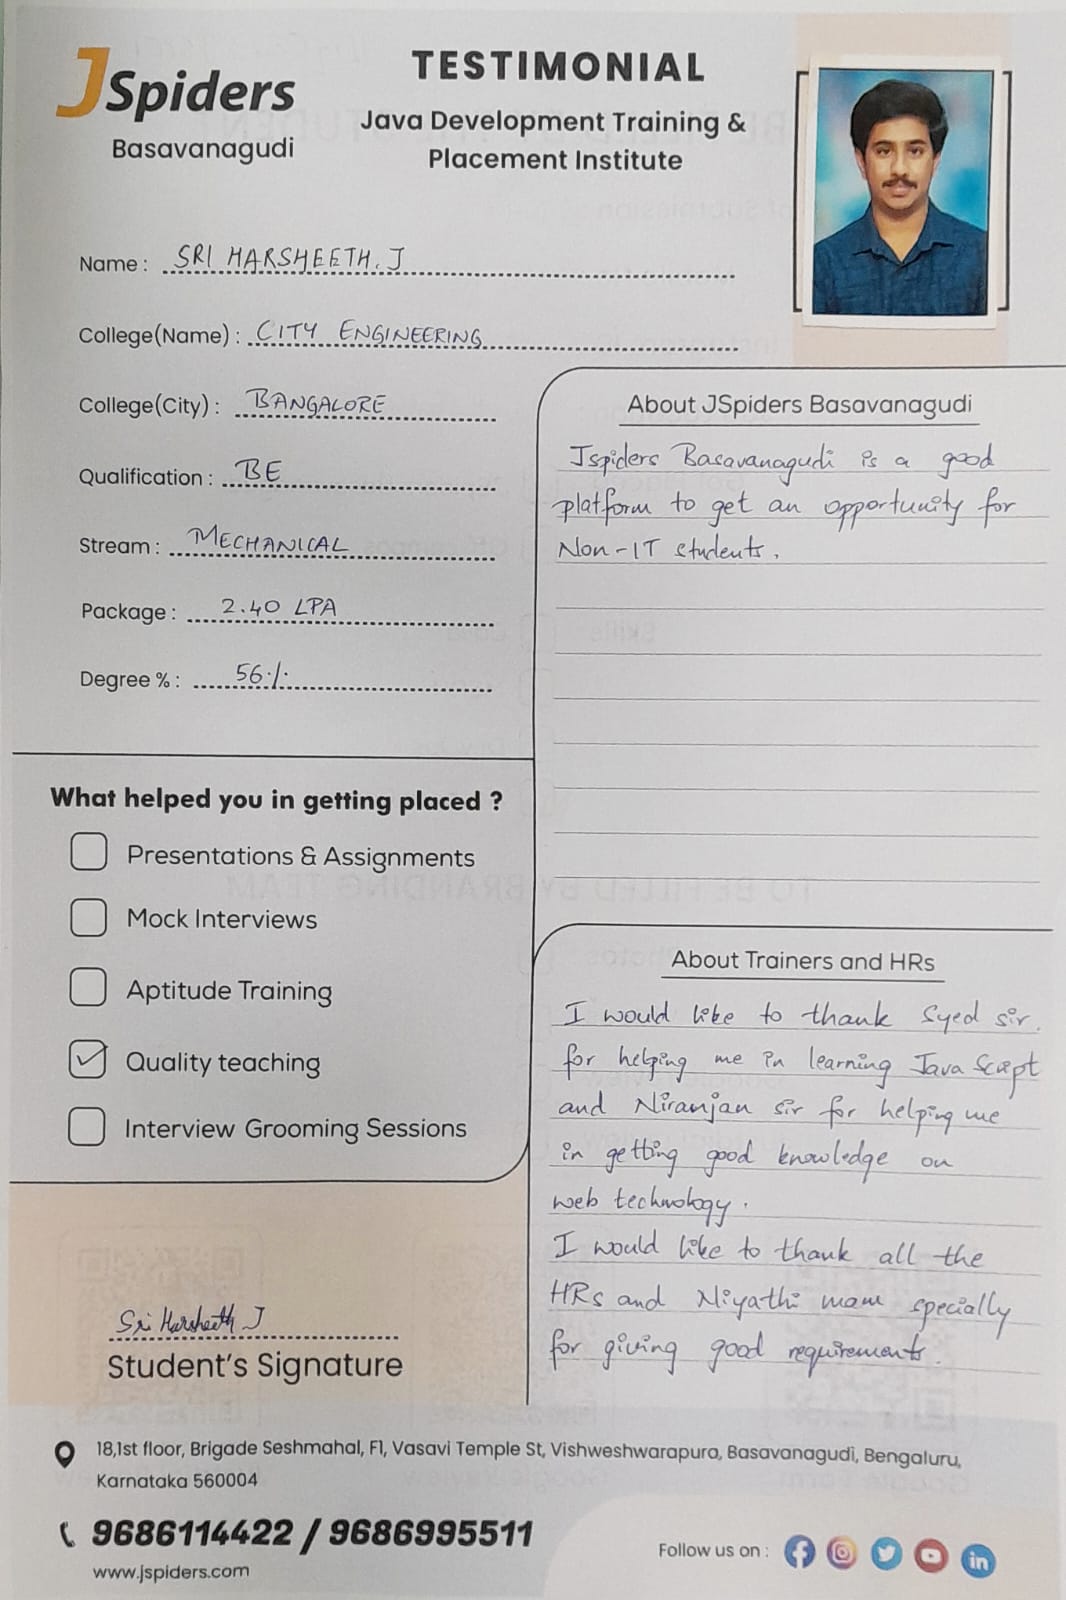 JSpiders
Basavanagudi
TESTIMONIAL
Java Development Training &
Placement Institute
Name : SRI HARSHEETH. J
College(Name) : CITY ENGINEERING
College(City) : BANGALORE
Qualification : BE
Stream : MECHANICAL
Package : 2.40 LPA
Degree % : 56%
What helped you in getting placed ?
Presentations & Assignments
Mock Interviews
Aptitude Training
Quality teaching
Interview Grooming Sessions
Sri Harsheeth J
Student's Signature
About JSpiders Basavanagudi
Jspiders Basavanagudi is a good
platform to get an opportunity for
Non-IT students.
About Trainers and HRs
I would like to thank Syed sir.
for helping me in learning Java Script
and Niranjan sir for helping me
in getting good knowledge on
web technology.
I would like to thank all the
HRs and Niyathi mam specially
for giving good requirements.
18,1st floor, Brigade Seshmahal, F1, Vasavi Temple St, Vishweshwarapura, Basavanagudi, Bengaluru,
Karnataka 560004
9686114422 / 9686995511
www.jspiders.com
Follow us on :